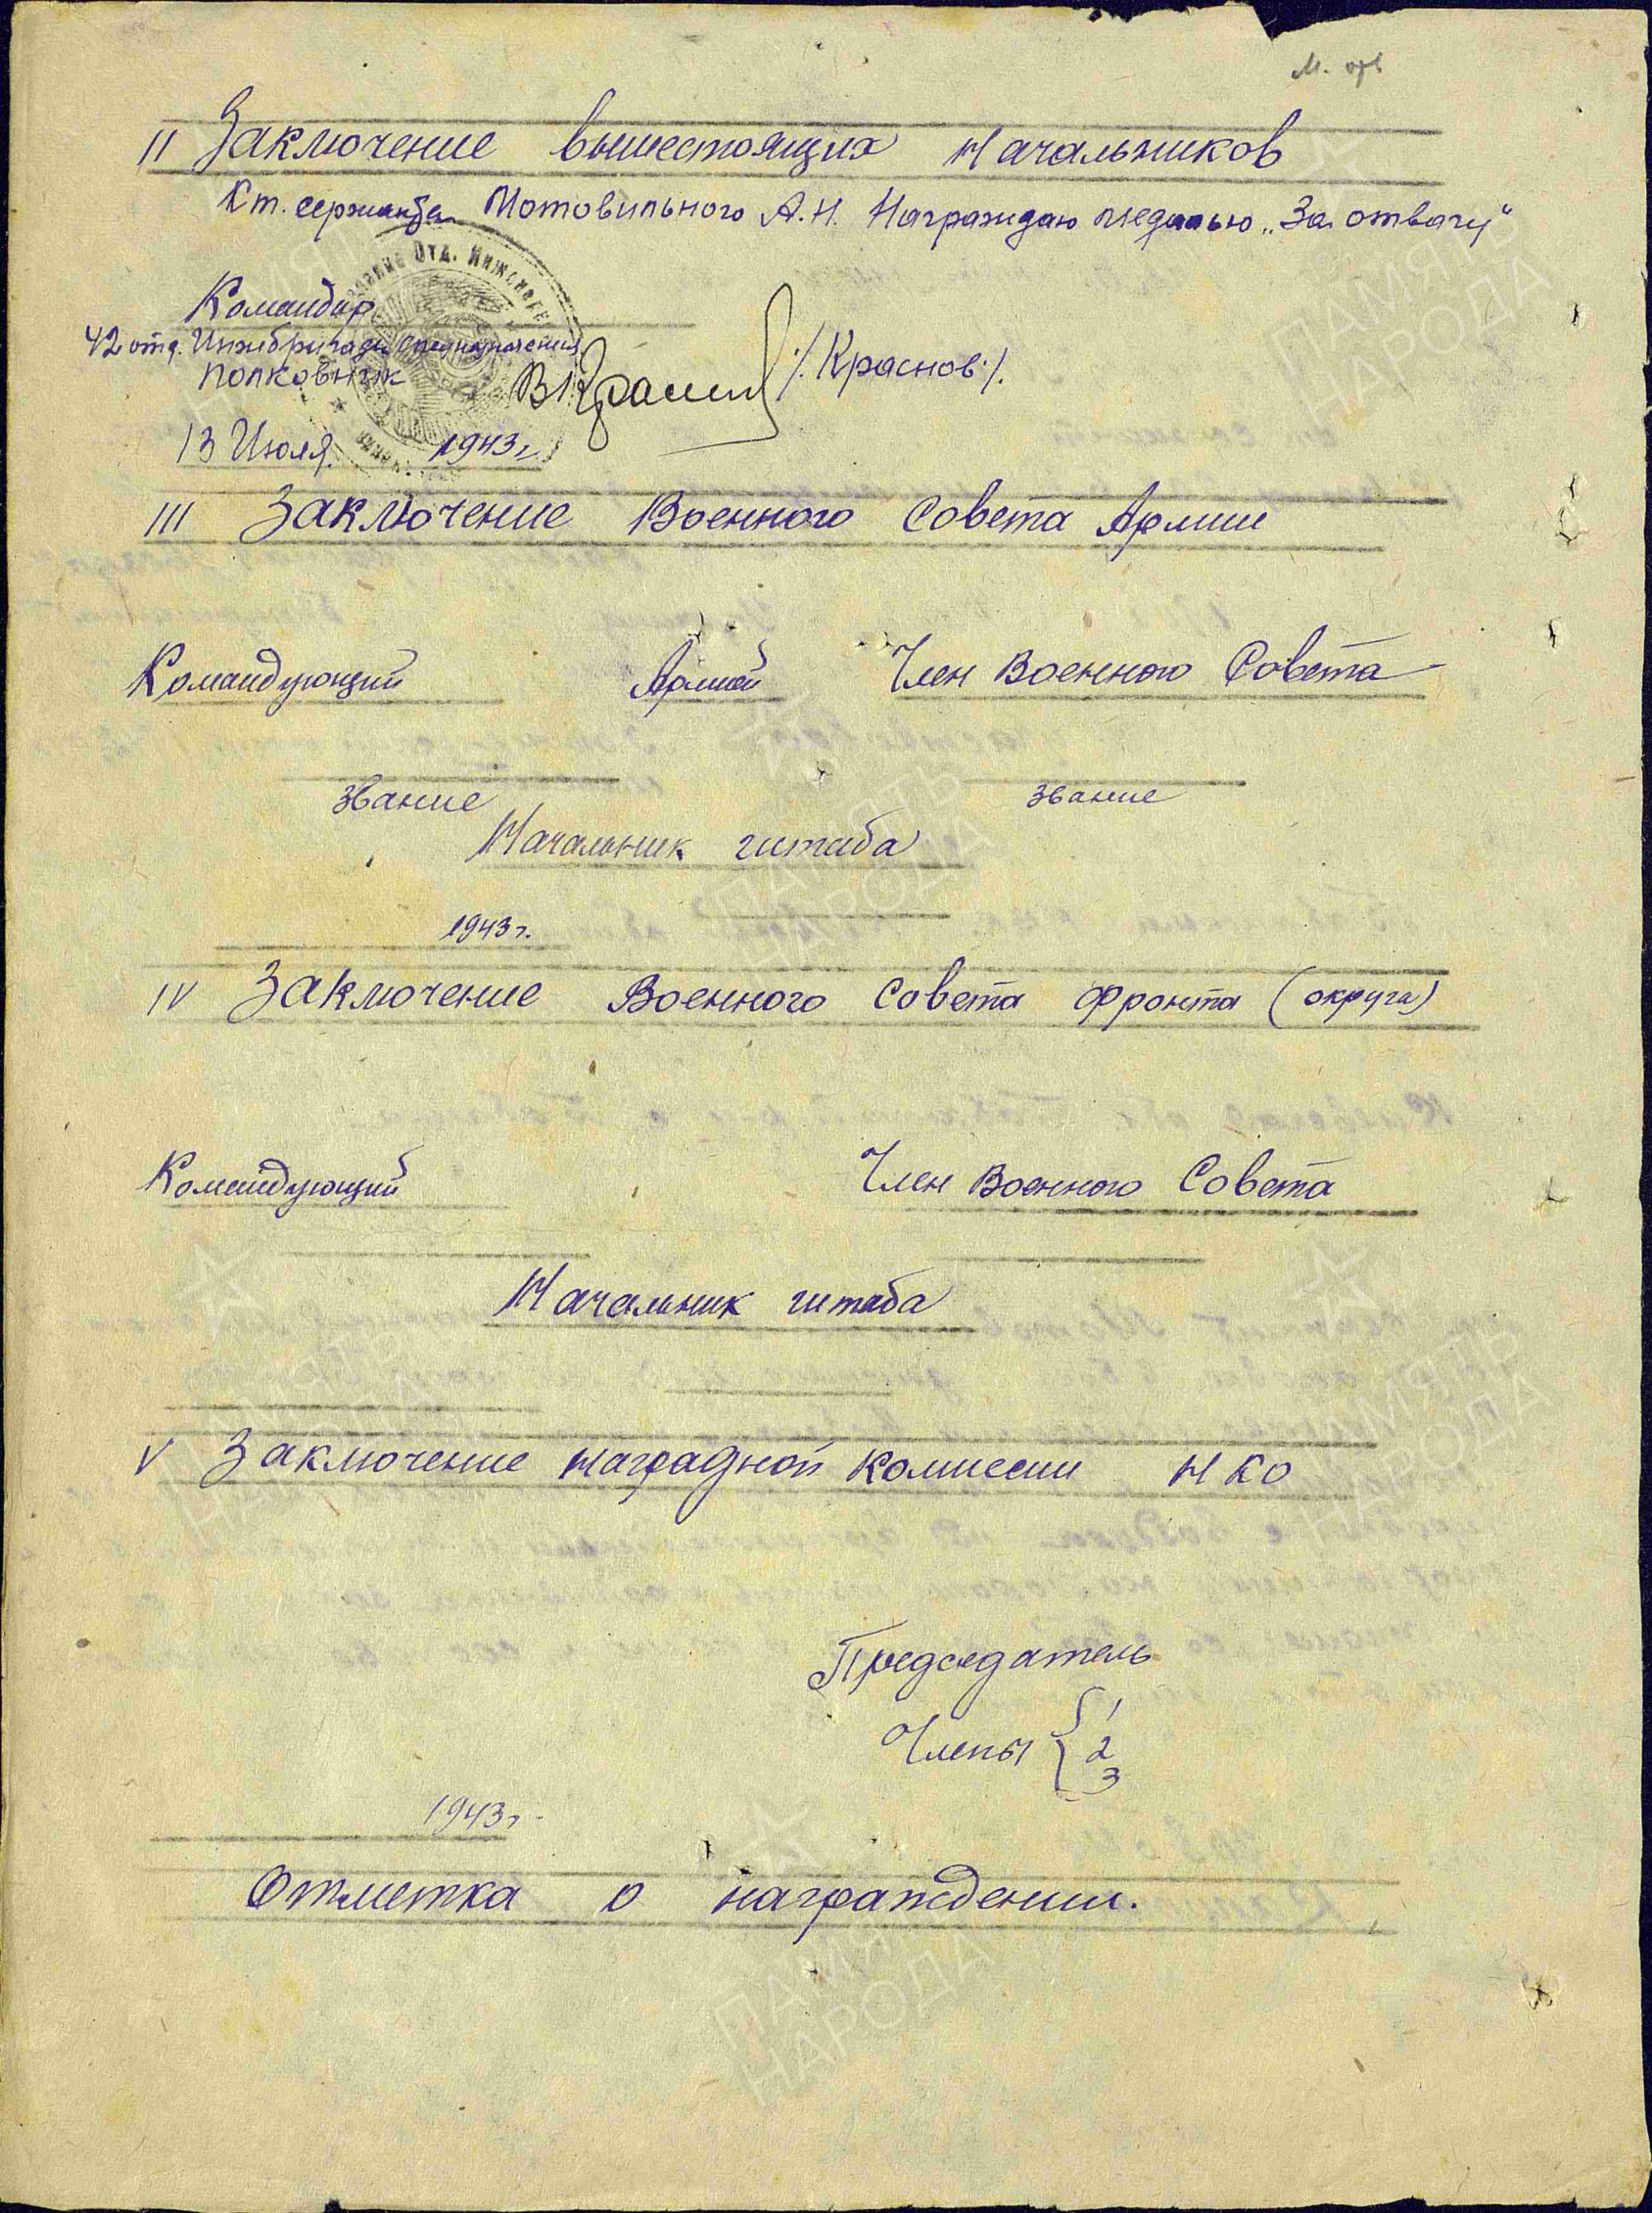 II Заключение вышестоящих начальников
Ст. сержанта Мотовильного А.Н. Награждаю медалью „За отвагу"
Командир
42 отд. Инжбригады Спецназначения
полковник
/Краснов/.
13 Июля 1943 г.
III Заключение Военного Совета Армии
Командующий Армией Член Военного Совета
звание звание
Начальник штаба
1943 г.
IV Заключение Военного Совета фронта (округа)
Командующий Член Военного Совета
Начальник штаба
V Заключение наградной комиссии НКО
Председатель
Члены { 1
2
3
1943 г.
Отметка о награждении.
ПАМЯТЬ
НАРОДА